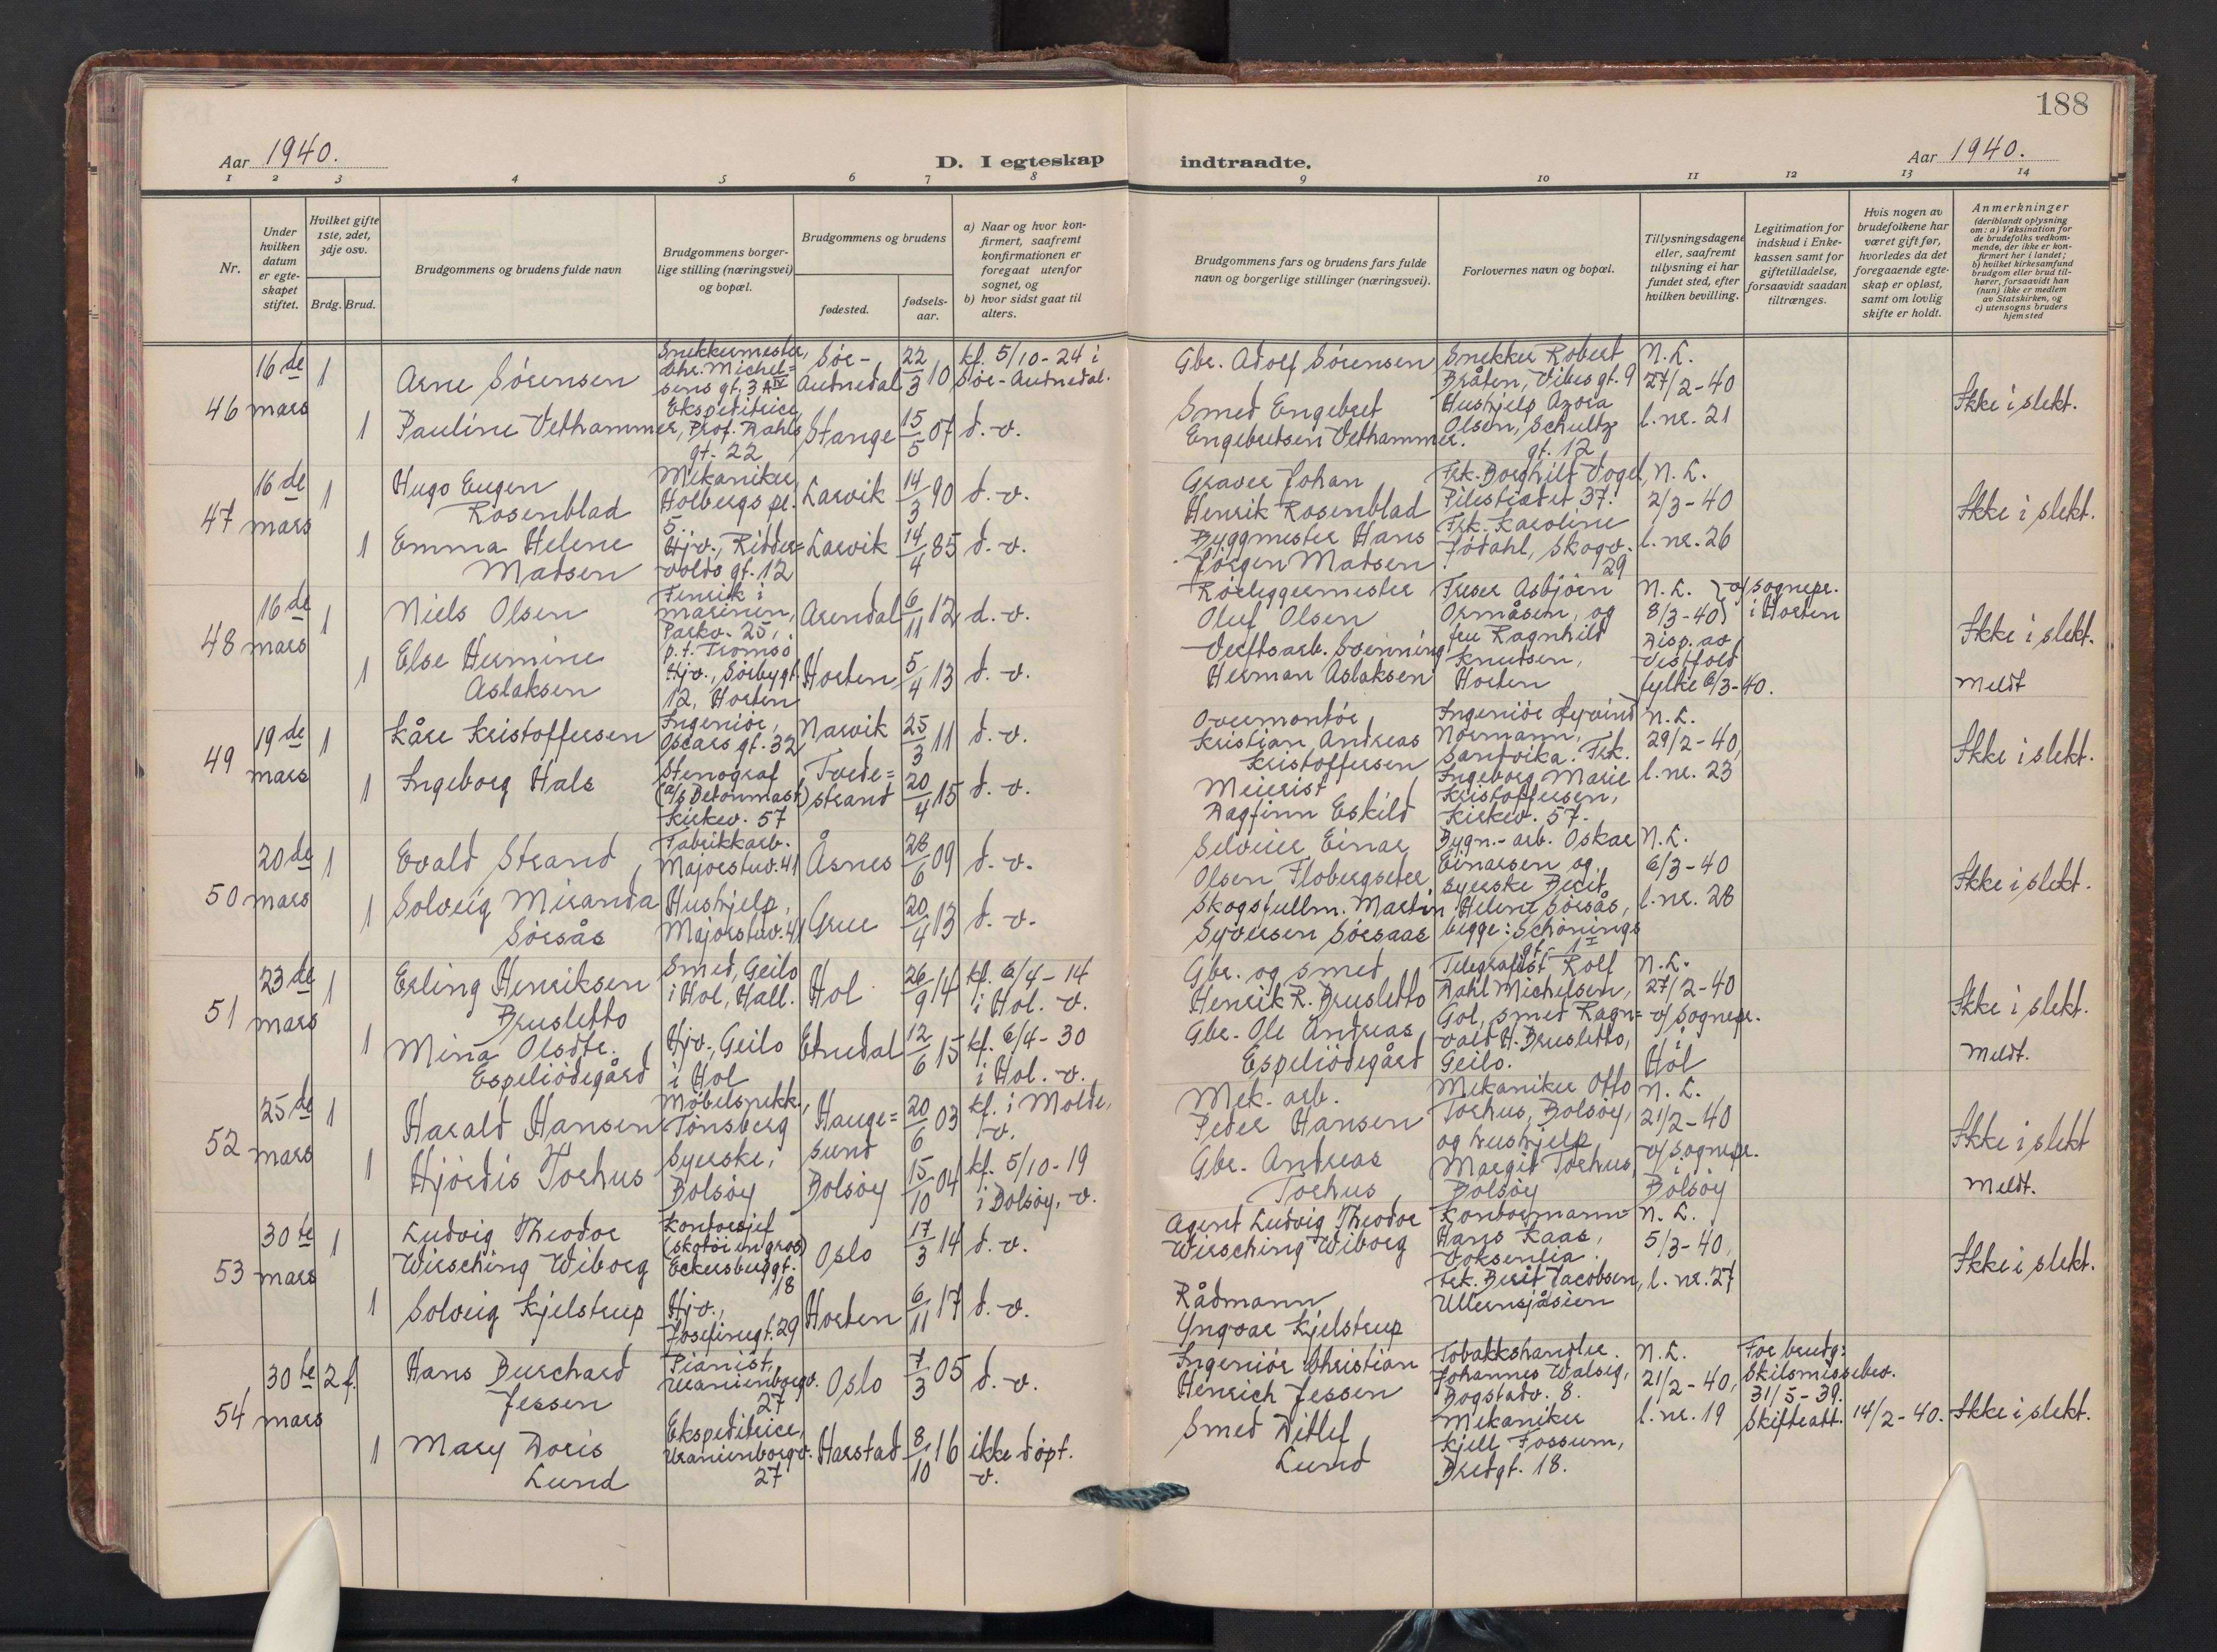 188
Aar 1940.
D. I egteskap indtraadte.
Aar 1940.
1 2 3 4 5 6 7 8 9 10 11 12 13 14
Nr.
Under hvilken datum er egte-skapet stiftet.
Hvilket gifte 1ste, 2det, 3dje osv.
Brdg. Brud.
Brudgommens og brudens fulde navn
Brudgommens borger-lige stilling (næringsvei) og bopæl.
Brudgommens og brudens
fødested.
fødsels-aar.
a) Naar og hvor kon-firmert, saafremt konfirmationen er foregaat utenfor sognet, og
b) hvor sidst gaat til alters.
Brudgommens fars og brudens fars fulde navn og borgerlige stillinger (næringsvei).
Forlovernes navn og bopæl.
Tillysningsdagene eller, saafremt tillysning ei har fundet sted, efter hvilken bevilling.
Legitimation for indskud i Enke-kassen samt for giftetilladelse, forsaavidt saadan tiltrænges.
Hvis nogen av brudefolkene har været gift før, hvorledes da det foregaaende egte-skap er opløst, samt om lovlig skifte er holdt.
Anmerkninger (deriblandt oplysning om: a) Vaksination for de brudefolks vedkom-mende, der ikke er kon-firmert her i landet; b) hvilket kirkesamfund brudgom eller brud til-hører, forsaavidt han (hun) ikke er medlem av Statskirken, og c) utensogns bruders hjemsted
46 16de mars 1
Arne Sørensen
Snekkermester, Chr. Michel=sens gt. 3A IV
Sør-Audnedal
22/3 10
kf. 5/10-24 i Sør-Audnedal.
Gbr. Adolf Sørensen
Snekker Robert Bråten, Vibes gt. 9
N.L. 27/2-40
l. nr. 21
Ikke i slekt.
1 Pauline Vethammer,
Ekspeditrice, Prof. Dahls gt. 22
Stange
15/5 07
d. v.
Smed Engebret Engebretsen Vethammer.
Hushjelp Azora Olsen, Schultz gt. 12
47 16de mars 1
Hugo Eugen Rosenblad
Mekaniker, Holbergs pl. 5.
Larvik
14/3 90
d. v.
Graver Johan Henrik Rosenblad
Frk. Borghild Vogel, Pilestredet 37.
N.L. 2/3-40
l. nr. 26
Ikke i slekt.
1 Emma Helene Madsen
Hjv., Ridder=volds gt. 12
Larvik
14/4 85
d. v.
Byggmester Hans Jørgen Madsen
Frk. Karoline Jødahl, Skogv. 29
48 16de mars 1
Niels Olsen
Fenrik i marinen, Parkv. 25, p.t. Tromsø
Arendal
6/11 12
d. v.
Rørleggermester Oluf Olsen
Frisør Asbjørn Ormåsen, og fru Ragnhild Knudsen, Horten
N.L. 8/3-40 v/ sognepr. i Horten
Disp. av Vestfold fylke 6/3-40.
Ikke i slekt.
Meldt
1 Else Hermine Aslaksen
Hjv., Sørbygt. 12, Horten
Horten
5/4 13
d. v.
Verftsarb. Svenning Herman Aslaksen
49 19de mars 1
Kåre Kristoffersen
Ingeniør, Oscars gt. 32
Narvik
25/3 11
d. v.
Overmontør Kristian Andreas Kristoffersen
Ingeniør Øyvind Normann, Sandvika. Frk. Ingeborg Marie Kristoffersen, Kirkev. 57.
N.L. 29/2-40,
l. nr. 23
Ikke i slekt.
1 Ingeborg Hals
Stenograf (A/S Betonmast) Kirkev. 57
Tvede=strand
20/4 15
d. v.
Meierist Dagfinn Eskild
50 20de mars 1
Evald Strand
Fabrikkarb. Majorstuv. 41
Åsnes
28/6 09
d. v.
Selveier Einar Olsen Flobergseter
Bygn.-arb. Oskar Einarsen og syerske Berit Helene Sørsås, begge: Schönings gt. 1 I
N.L. 6/3-40
l. nr. 28
Ikke i slekt.
1 Solveig Miranda Sørsås
Hushjelp, Majorstuv. 41
Grue
20/4 13
d. v.
Skogsfullm. Martin Syversen Sørsaas
51 23de mars 1
Erling Henriksen Brusletto
Smed, Geilo i Hol, Hall.
Hol
26/9 14
kf. 6/4-14 i Hol. v.
Gbr. og smed Henrik R. Brusletto
Telegrafist Rolf Dahl Michelsen, Gol, smed Ragn=vald H. Brusletto, Geilo.
N.L. 27/2-40 v/ sognepr. i Hol
Ikke i slekt.
Meldt.
1 Mina Olsdtr. Espeliødegård
Hjv., Geilo i Hol
Etnedal
12/6 15
kf. 6/4-30 i Hol. v.
Gbr. Ole Andreas Espeliødegård
52 25de mars 1
Harald Hansen
Møbelsnekk., Tönsberg
Hauge=sund
20/6 03
kf. i Molde, v.
Mek. arb. Peder Hansen
Mekaniker Otto Torhus, Bolsøy, og hushjelp Margit Torhus, Bolsøy
N.L. 21/2-40 v/ sognepr. i Bolsøy
Ikke i slekt
Meldt.
1 Hjördis Torhus
Syerske, Bolsøy
Bolsøy
15/10 04
kf. 5/10-19 i Bolsøy, v.
Gbr. Andreas Torhus
53 30te mars 1
Ludvig Theodor Wirsching Wiborg
Kontorsjef (skotøi en gros) Eckersberggt. 18
Oslo
17/3 14
d. v.
Agent Ludvig Theodor Wirsching Wiborg
Kontormann Hans Kaas, Voksenlia. Frk. Berit Jacobsen, Ullernsjåsien
N.L. 5/3-40,
l. nr. 27
Ikke i slekt.
1 Solveig Kjelstrup
Hjv., Josefinegt. 29
Horten
6/11 17
d. v.
Rådmann Yngvar Kjelstrup
54 30te mars 2 f.
Hans Burchard Jessen
Pianist, Uranienborgv. 27
Oslo
7/3 05
d. v.
Ingeniør Christian Henrich Jessen
Tobakkshandler Johannes Walseg, Bogstadv. 8.
N.L. 21/2-40,
l. nr. 19
For brudg: Skilsmissebev. 31/5-39. Skifteatt. 14/2-40.
Ikke i slekt.
1 Mary Doris Lund
Ekspeditrice, Uranienborgv. 27
Harstad
8/10 16
ikke døpt. v.
Smed Ditlef Lund
Mekaniker Kjell Fossum, Bredgt. 18.